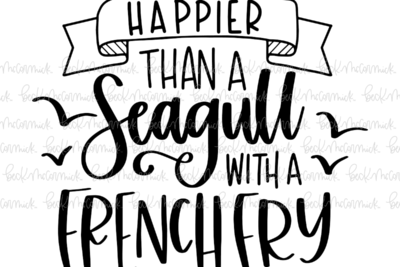 HAPPIER
THAN A
Seagull
WITH A
FRENCH FRY